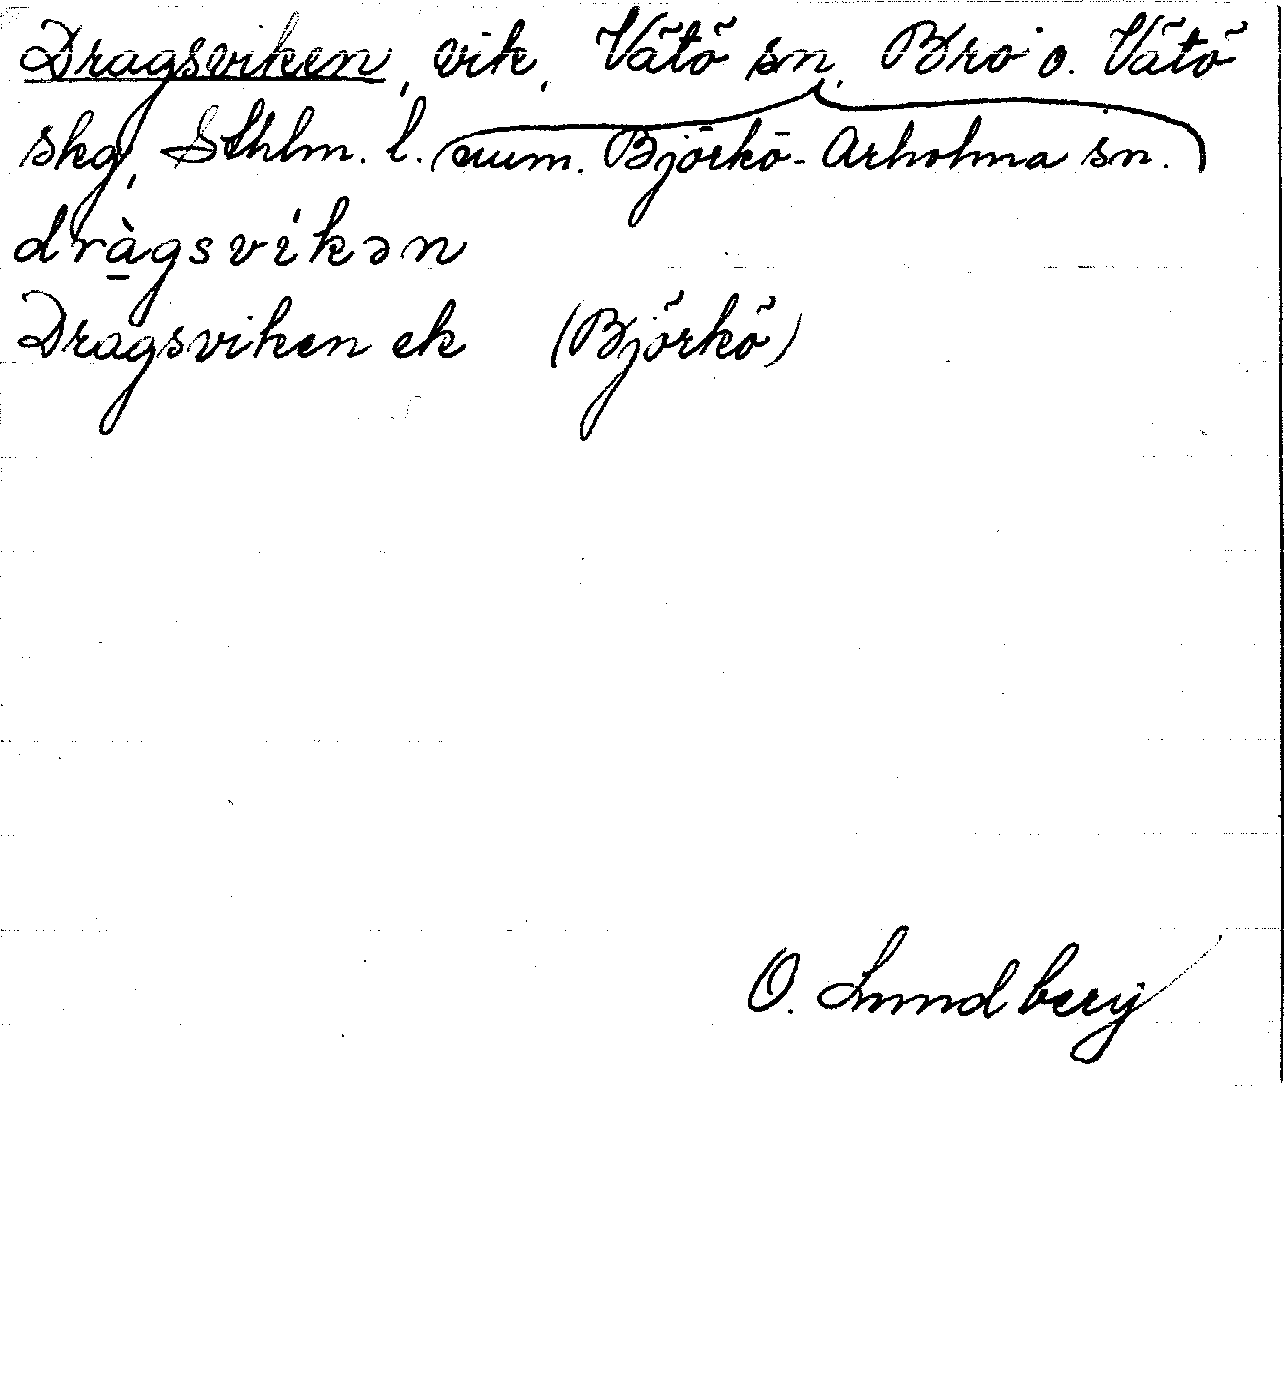 Dragsviken, vik, Vätö sn, Bro o. Vätö
skg, Sthlm. l. (num. Björkö-Arholma sn.)
dràgsvikən
Dragsviken ek (Björkö)
O. Lundberg